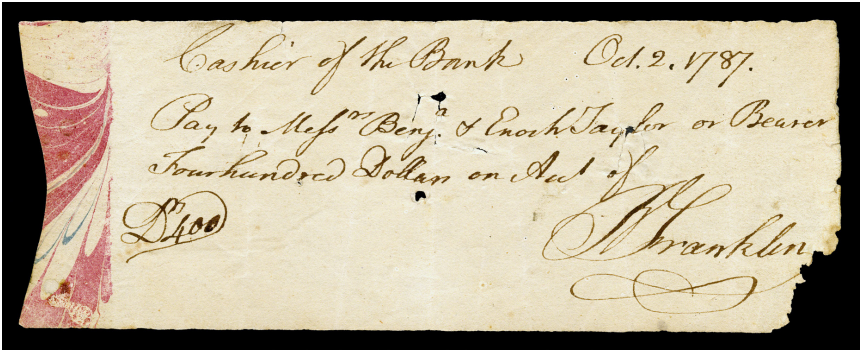 Cashier of the Bank Oct. 2. 1787.
Pay to Messrs Benja. & Enoch Taylor or Bearer
Fourhundred Dollars on Acct of
Drs 400
B Franklin